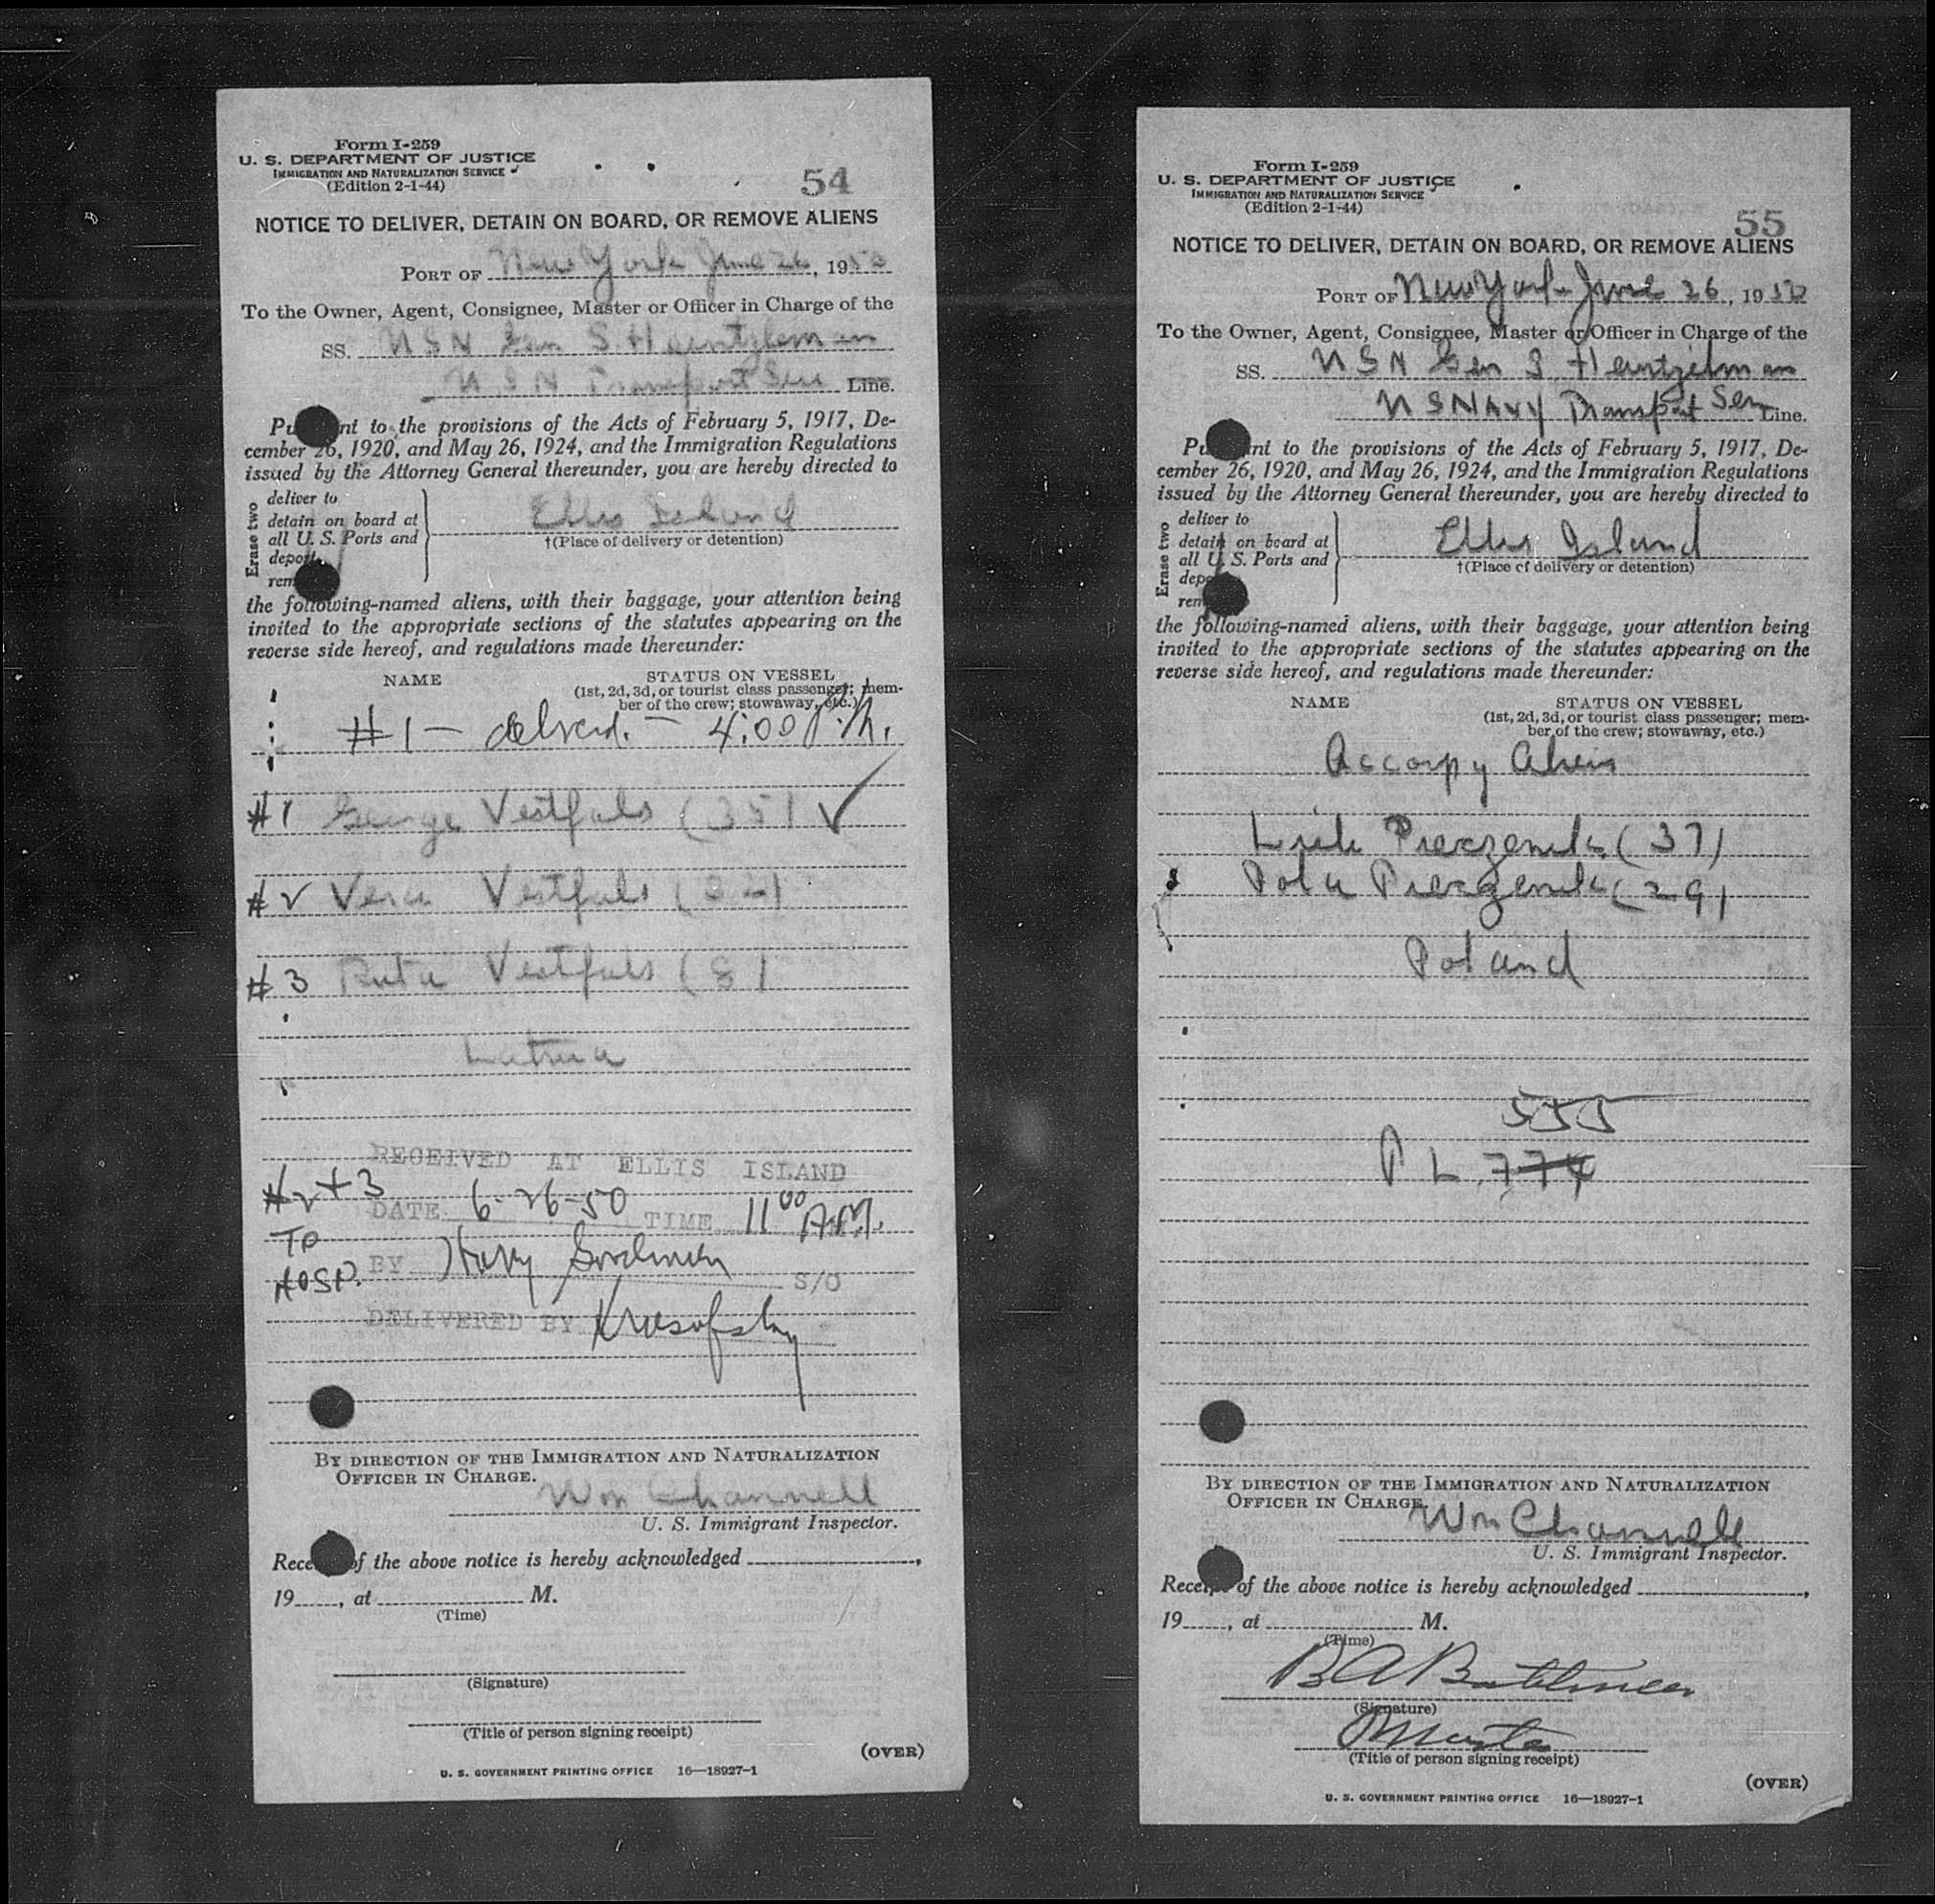 Form I-259
U. S. DEPARTMENT OF JUSTICE
IMMIGRATION AND NATURALIZATION SERVICE
(Edition 2-1-44)
54
NOTICE TO DELIVER, DETAIN ON BOARD, OR REMOVE ALIENS
PORT OF New York June 26, 1950
To the Owner, Agent, Consignee, Master or Officer in Charge of the
SS. USN Gen S. Heintzleman
USN Transport Line.
Pu nt to the provisions of the Acts of February 5, 1917, De-
cember 26, 1920, and May 26, 1924, and the Immigration Regulations
issued by the Attorney General thereunder, you are hereby directed to
Erase two
deliver to
detain on board at
all U. S. Ports and
depor
rem
Ellis Island
†(Place of delivery or detention)
the following-named aliens, with their baggage, your attention being
invited to the appropriate sections of the statutes appearing on the
reverse side hereof, and regulations made thereunder:
NAME STATUS ON VESSEL
(1st, 2d, 3d, or tourist class passenger; mem-
ber of the crew; stowaway, etc.)
#1 — — 4:00 P.M.
#1 George Vestfals (35) ✓
#2 Vera Vestfals (32)
#3 Ruta Vestfals (8)
Latvia
RECEIVED AT ELLIS ISLAND
#2+3
DATE 6-26-50 TIME 11 00 A.M.
TO
HOSP.
BY Harry S/O
DELIVERED BY
BY DIRECTION OF THE IMMIGRATION AND NATURALIZATION
OFFICER IN CHARGE.
Wm Channell
U. S. Immigrant Inspector.
Rece of the above notice is hereby acknowledged ,
19 , at M.
(Time)
(Signature)
(Title of person signing receipt)
(OVER)
U. S. GOVERNMENT PRINTING OFFICE 16—18927-1
Form I-259
U. S. DEPARTMENT OF JUSTICE
IMMIGRATION AND NATURALIZATION SERVICE
(Edition 2-1-44)
55
NOTICE TO DELIVER, DETAIN ON BOARD, OR REMOVE ALIENS
PORT OF New York June 26, 1950
To the Owner, Agent, Consignee, Master or Officer in Charge of the
SS. USN Gen S Heintzelman
US Navy Transport Line.
Pu nt to the provisions of the Acts of February 5, 1917, De-
cember 26, 1920, and May 26, 1924, and the Immigration Regulations
issued by the Attorney General thereunder, you are hereby directed to
Erase two
deliver to
detain on board at
all U. S. Ports and
depo
rem
Ellis Island
†(Place of delivery or detention)
the following-named aliens, with their baggage, your attention being
invited to the appropriate sections of the statutes appearing on the
reverse side hereof, and regulations made thereunder:
NAME STATUS ON VESSEL
(1st, 2d, 3d, or tourist class passenger; mem-
ber of the crew; stowaway, etc.)
Accompy Alien
(37)
Pola (29)
Poland
555
PL 774
BY DIRECTION OF THE IMMIGRATION AND NATURALIZATION
OFFICER IN CHARGE.
Wm Channell
U. S. Immigrant Inspector.
Receipt of the above notice is hereby acknowledged ,
19 , at M.
(Time)
(Signature)
Master
(Title of person signing receipt)
(OVER)
U. S. GOVERNMENT PRINTING OFFICE 16—18927-1